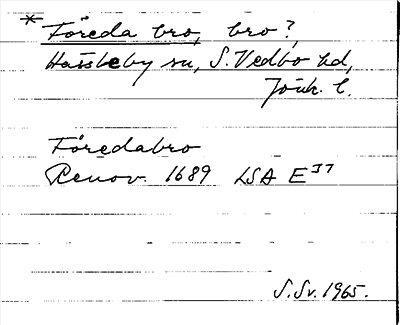 * Föreda bro, bro?,
Hässleby sn, S. Vedbo hd,
Jönk. l.
Föredabro
Renov. 1689 LSA E³⁷
S. Sv. 1965.